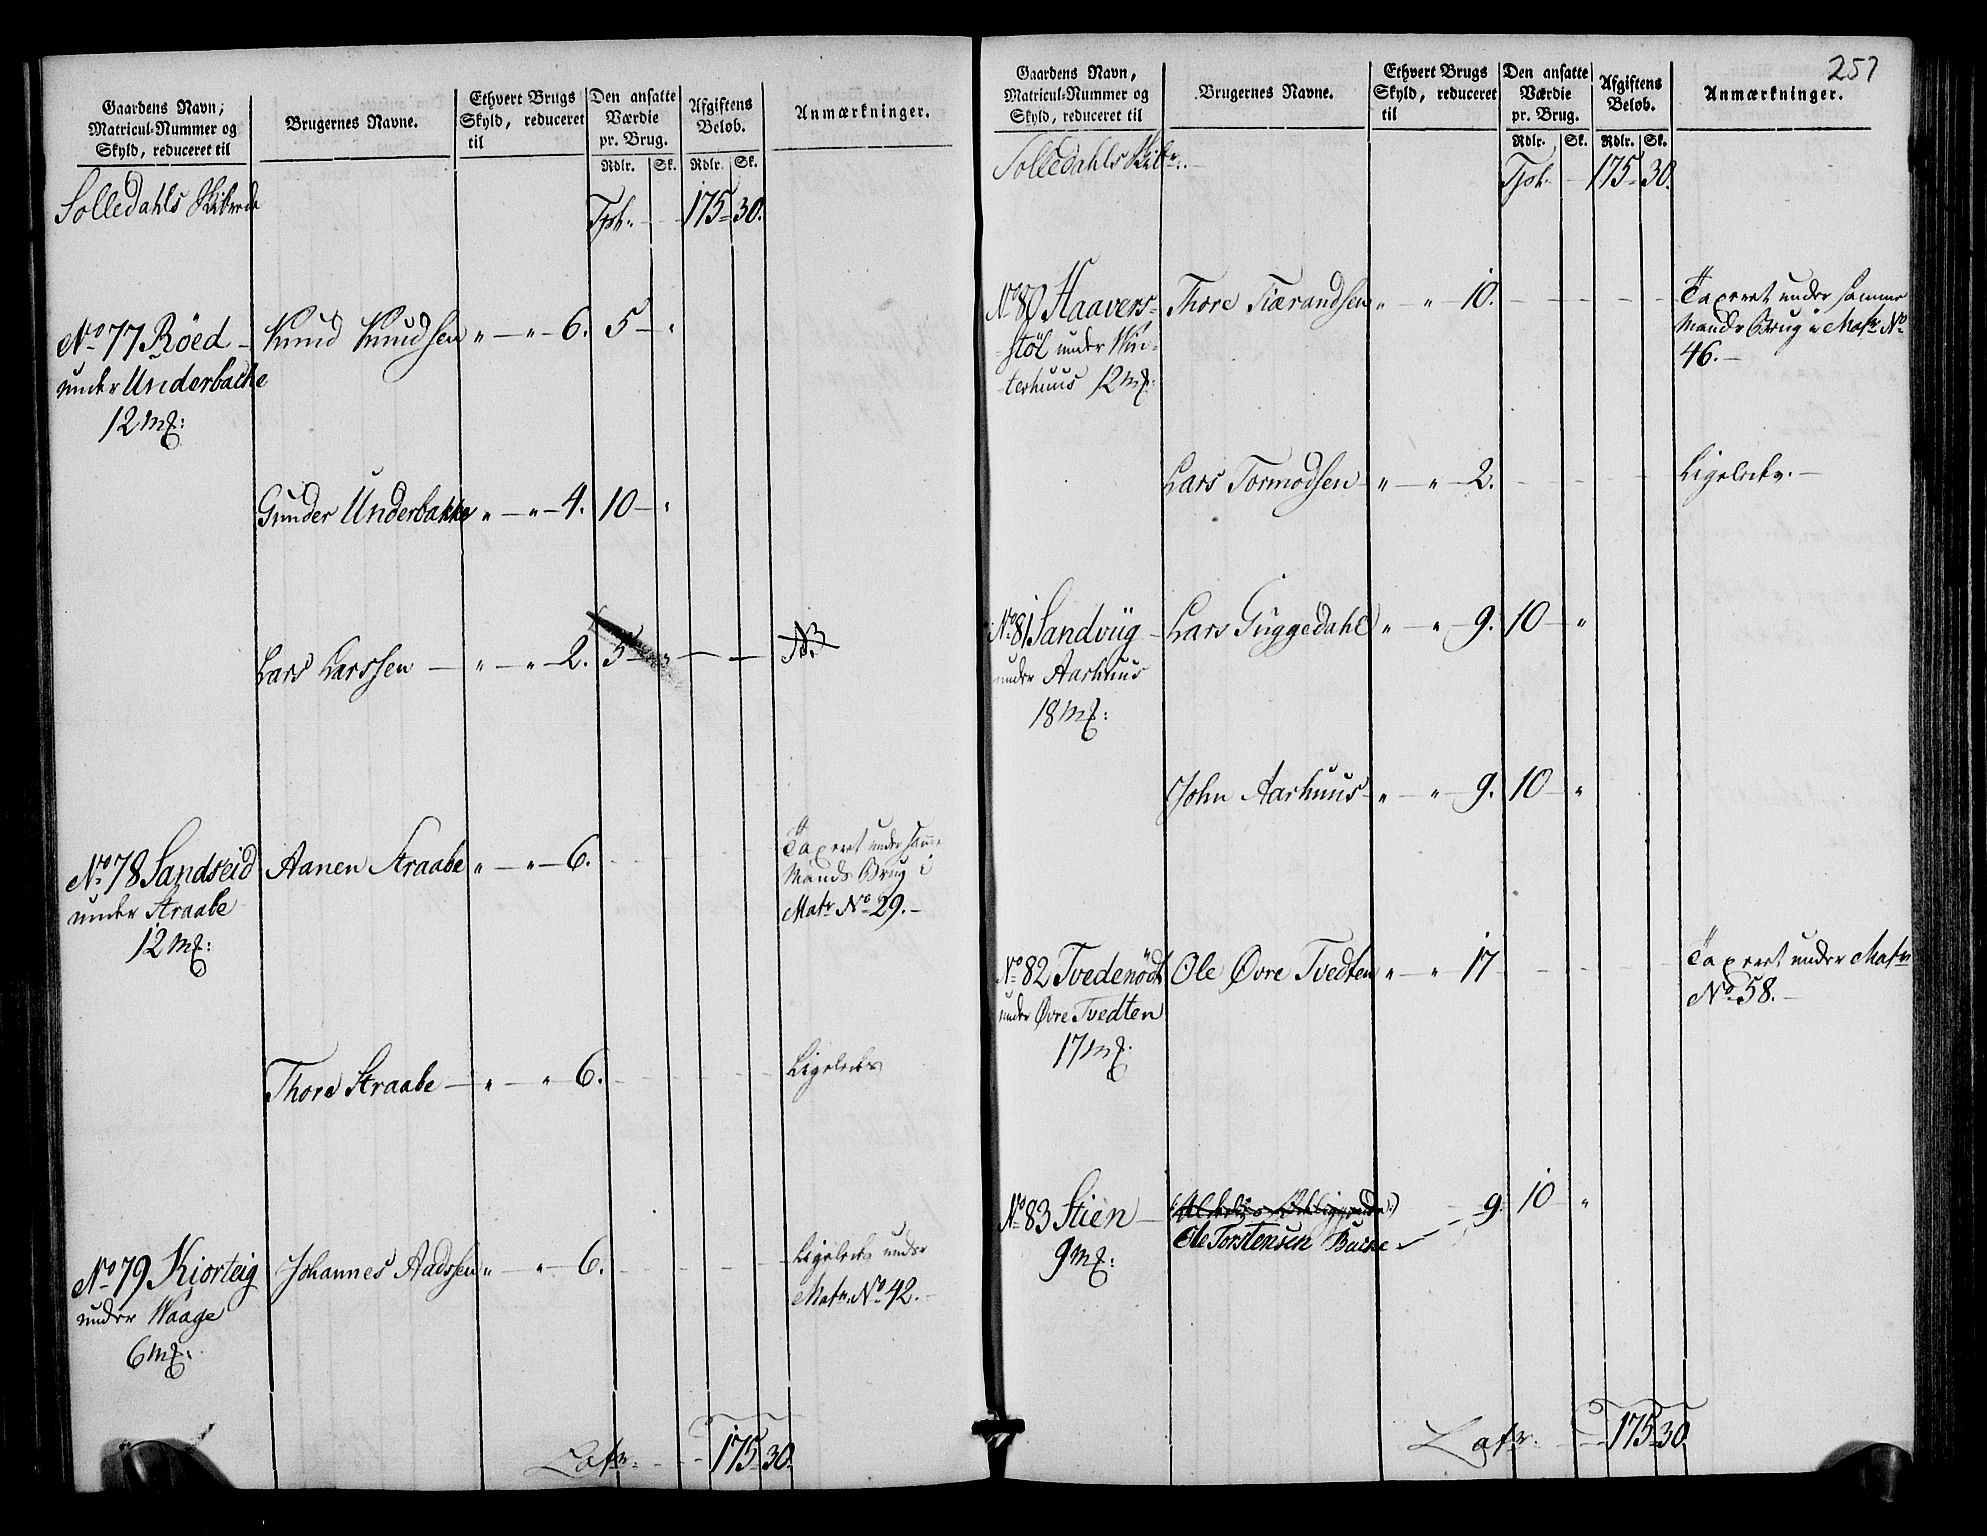 Gaardens Navn,
Matricul-Nummer og
Skyld, reduceret til
Brugernes Navne.
Ethvert Brugs
Skyld, reduceret
til
Den ansatte
Værdie
pr. Brug.
Rdlr. Sk.
Afgiftens
Beløb.
Rdlr. Sk.
Anmærkninger.
Solledahls Skibrede
Tpt. 175 30.
No 77 Röed Knud Knudsen " " 6. 5 "
under Underbacke
12 mf:
Gunder Underbakke " " 4. 10 "
Lars Larssen " " 2. 5 "
No 78 Sandseid Aanen Straabe " " 6. Taxeret under samme
under Straabe Mands Brug i
12 mf: Matr No 29.
Thore Straabe " " 6. Ligeledes
No 79 Kiorteig Johannes Aadssen " " 6. Ligeledes under
under Waage Matr. No 42.
6 mf:
Latr. 175 30.
257
Gaardens Navn,
Matricul-Nummer og
Skyld, reduceret til
Brugernes Navne.
Ethvert Brugs
Skyld, reduceret
til
Den ansatte
Værdie
pr. Brug.
Rdlr. Sk.
Afgiftens
Beløb.
Rdlr. Sk.
Anmærkninger.
Solledahls Skibr.
Tpt. 175 30.
No 80 Haavers- Thore Tiærandsen " " 10. Taxeret under samme
støl under Vin- Mands Brug i Matr No
terhuus 12 mf: 46.
Lars Tormodsen " " 2. Ligeledes.
No 81 Sandviig Lars Guggedahl " " 9. 10 "
under Aarhuus
18 mf:
John Aarhuus " " 9. 10 "
No 82 Tvedenödt Ole Øvre Tvedten " " 17 Taxeret under Matr
under Øvre Tvedten No 58.
17 mf.
No 83 Stien 9. 10 "
9 mf: Ole Torstensen Backe
Latr. 175 30.